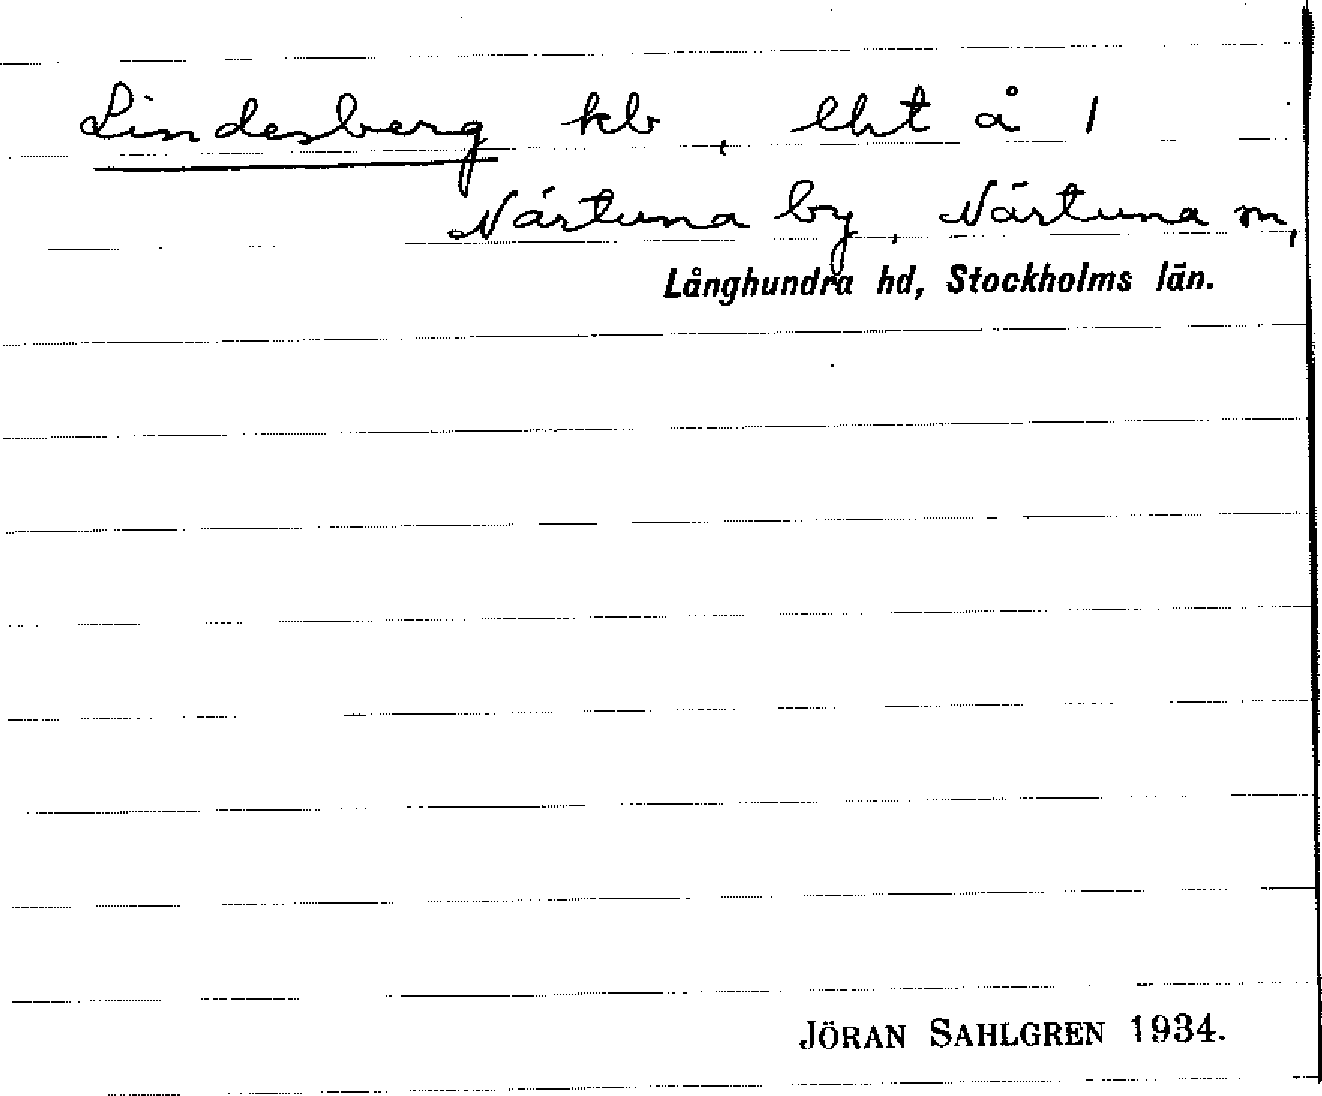 Lindesberg kb, lht å 1
Närtuna by, Närtuna sn,
Långhundra hd, Stockholms län.
JÖRAN SAHLGREN 1934.